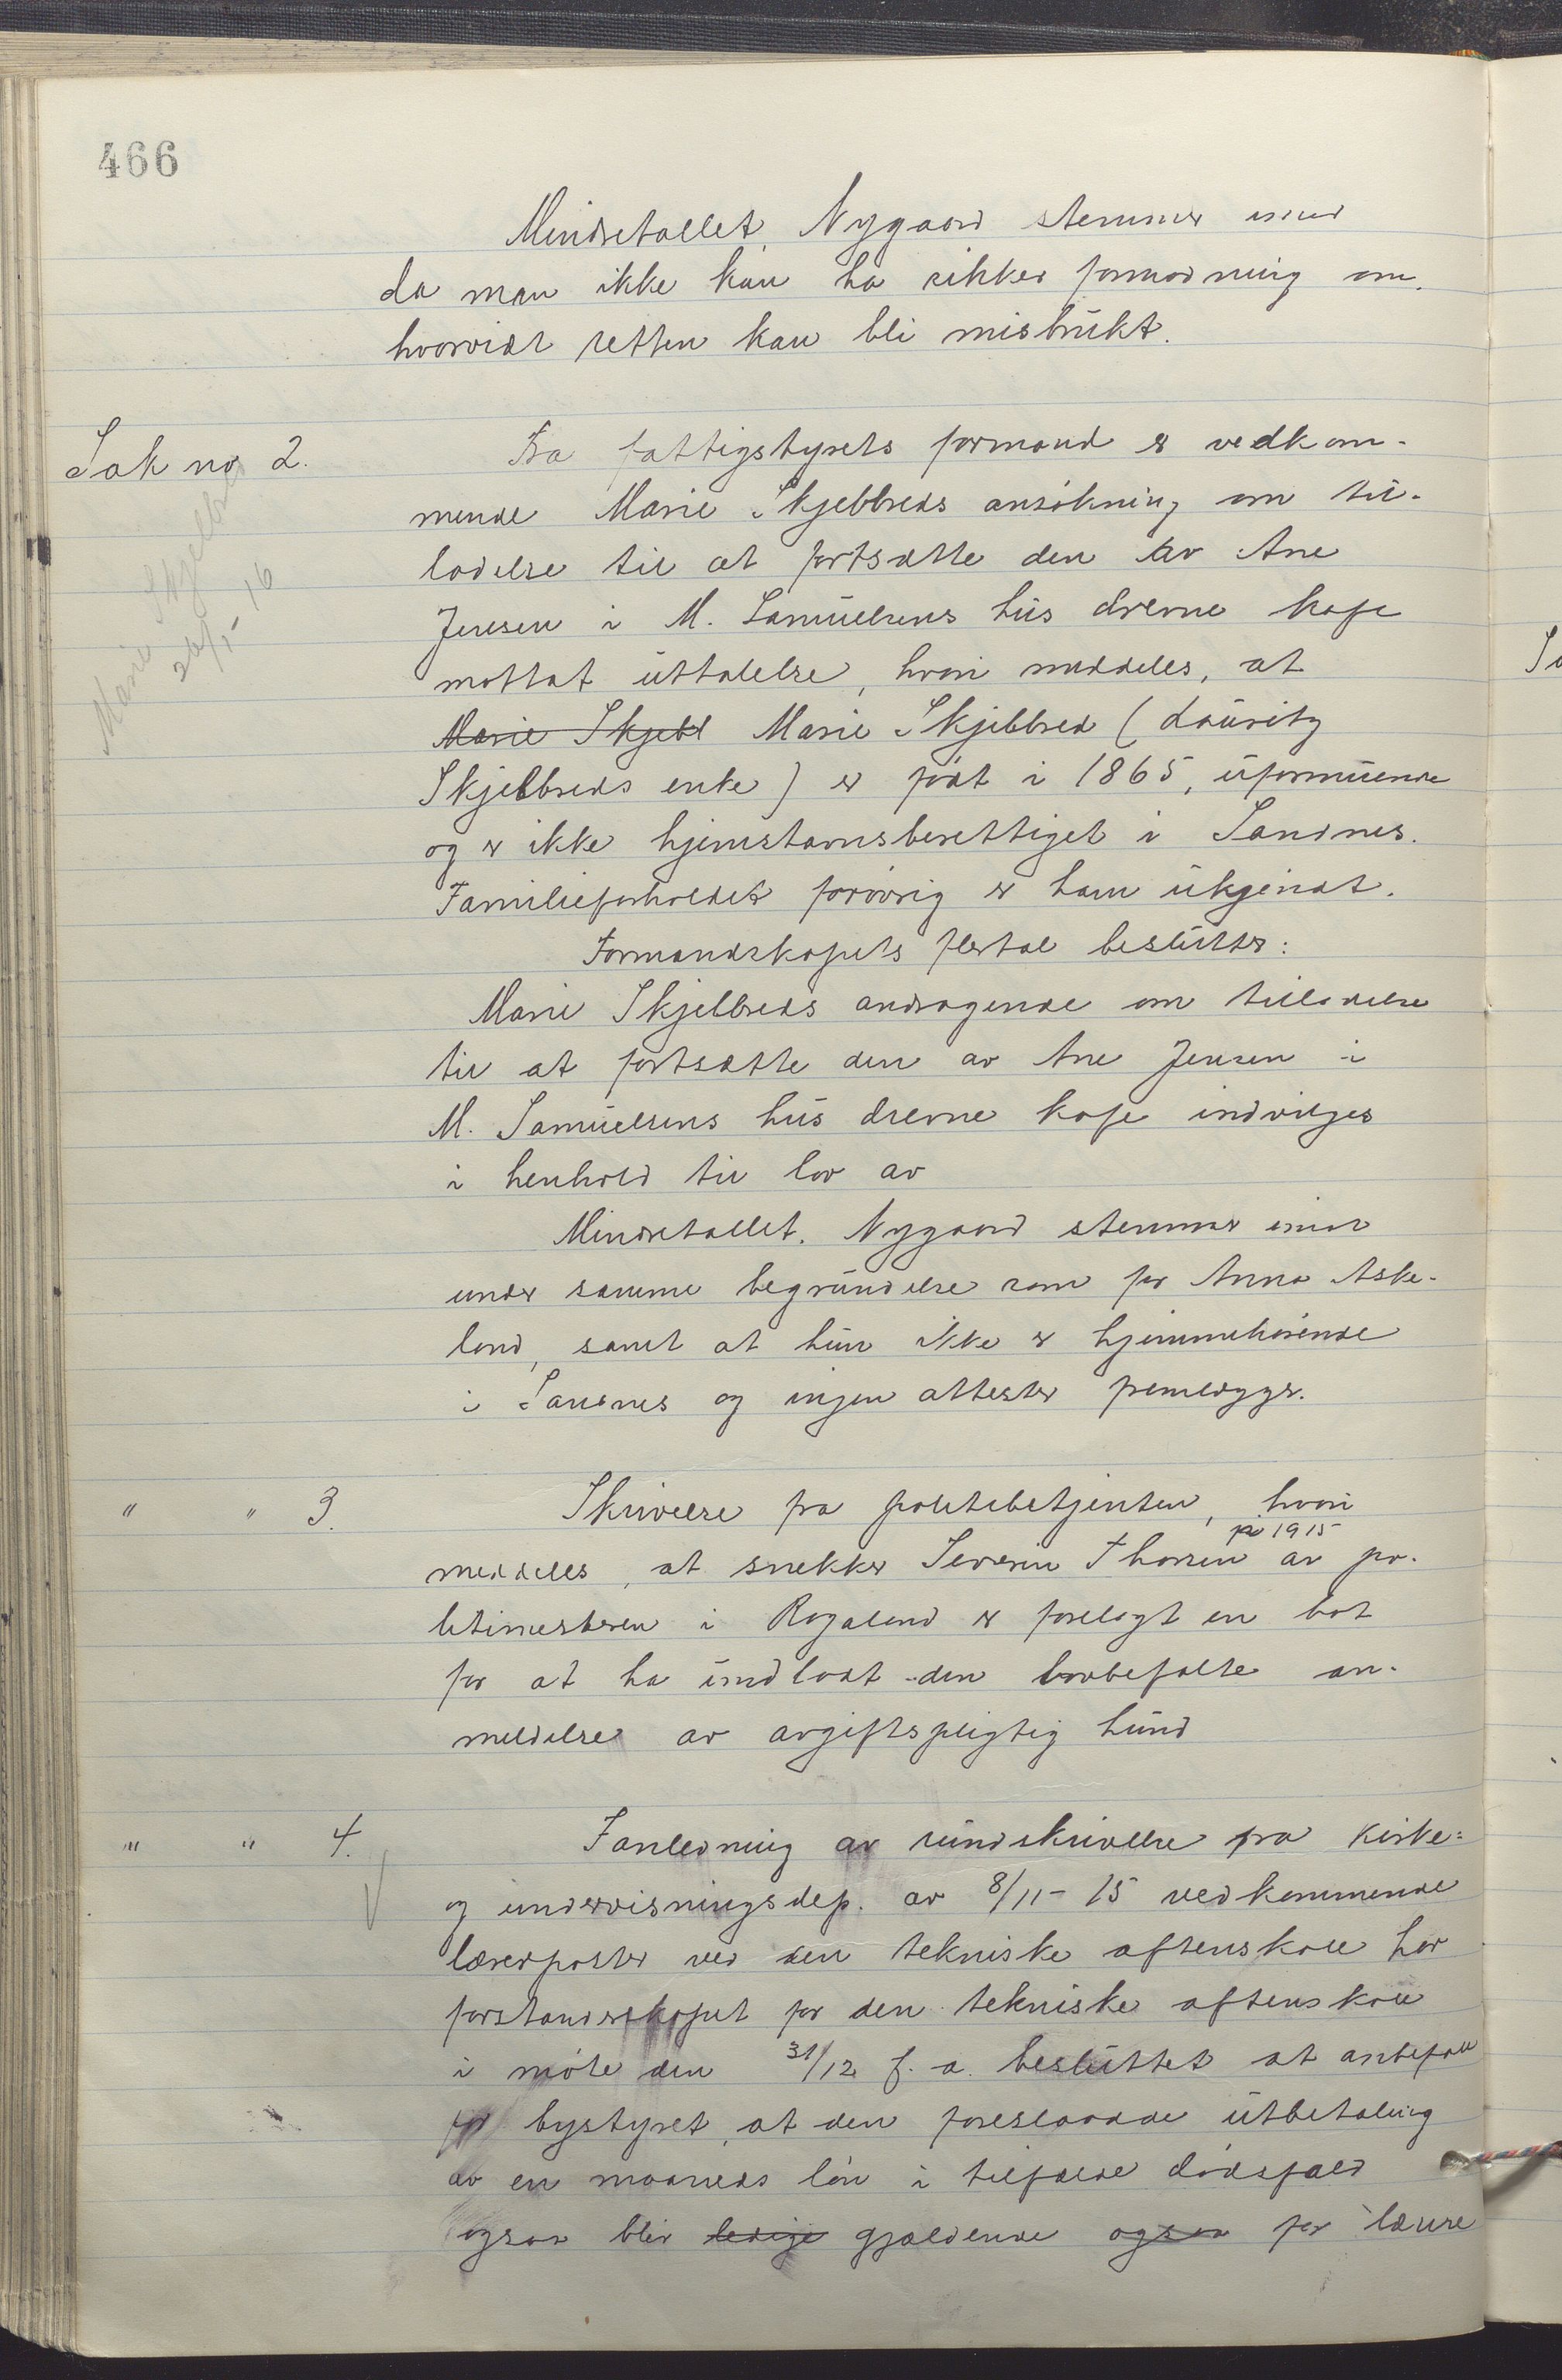 466
Mindretallet, Nygaard stemmer imod
da man ikke kan ha sikker formodning om
hvorvidt retten kan bli misbrukt.
Sak no 2.
Marie Skjelbred
26/5 16
Fra fattigstyrets formand er vedkom-
mende Marie Skjelbreds ansökning om til-
ladelse til at fortsætte den av Ane
Jensen i M. Samuelsens hus drevne kafe
mottat uttalelse, hvori meddeles, at
Marie Skjebl Marie Skjelbred (Lauritz
Skjelbreds enke) er född i 1865, uformuende
og er ikke hjemstavnsberettiget i Sandnes.
Familieforholdet forövrig er ham ukjendt.
Formandskapets flertal beslutter:
Marie Skjelbreds andragende om tilladelse
til at fortsætte den av Ane Jensen i
M. Samuelsens hus drevne kafe indvilges
i henhold til lov av
Mindretallet. Nygaard stemmer imot
under samme begrundelse som for Anna Aske-
land, samt at hun ikke er hjemmehörende
i Sandnes og ingen attester fremlægges.
" " 3.
Skrivelse fra politibetjenten, hvori
meddeles, at snekker Severin Thorsen på 1915 av po-
litimesteren i Rogaland er forelagt en bot
for at ha undlatt den lovbefalte an-
meldelse av avgiftspligtig hund
" " 4.
I anledning av rundskrivelse fra kirke-
og undervisningsdep. av 8/11-15 vedkommende
lærerposter ved den tekniske aftenskole har
forstanderskapet for den tekniske aftenskole
i möte den 31/12 f. a. besluttet at anbefale
for bystyret, at den foreslaadde utbetaling
av en maaneds lön i tilfælde dödsfald
ogsaa blir ledige gjældende ogsaa for lærere